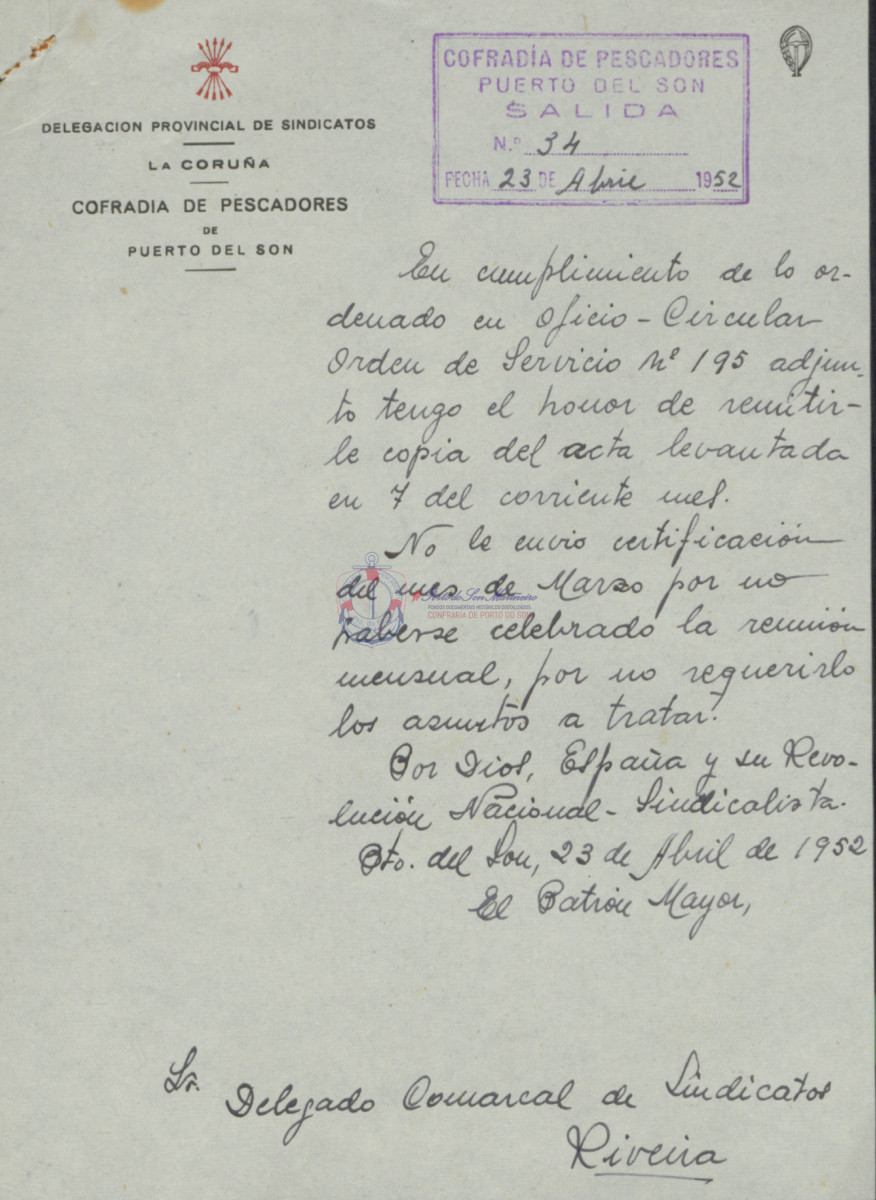 DELEGACION PROVINCIAL DE SINDICATOS
LA CORUÑA
COFRADIA DE PESCADORES
DE
PUERTO DEL SON
COFRADÍA DE PESCADORES
PUERTO DEL SON
SALIDA
N.º 34
FECHA 23 DE Abril 1952
En cumplimiento de lo or-
denado en Oficio-Circular
Orden de Servicio Nº 195 adjun-
to tengo el honor de remitir-
le copia del acta levantada
en 7 del corriente mes.
No le envio certificación
del mes de Marzo por no
haberse celebrado la reunión
mensual, por no requerirlo
los asuntos a tratar.
Por Dios, España y su Revo-
lución Nacional-Sindicalista.
Pto. del Son, 23 de Abril de 1952
El Patrón Mayor,
Sr. Delegado Comarcal de Sindicatos
Riveira
#Porto do Son Mariñeiro
FONDOS DOCUMENTAIS HISTÓRICOS DIXITALIZADOS
CONFRARÍA DE PORTO DO SON